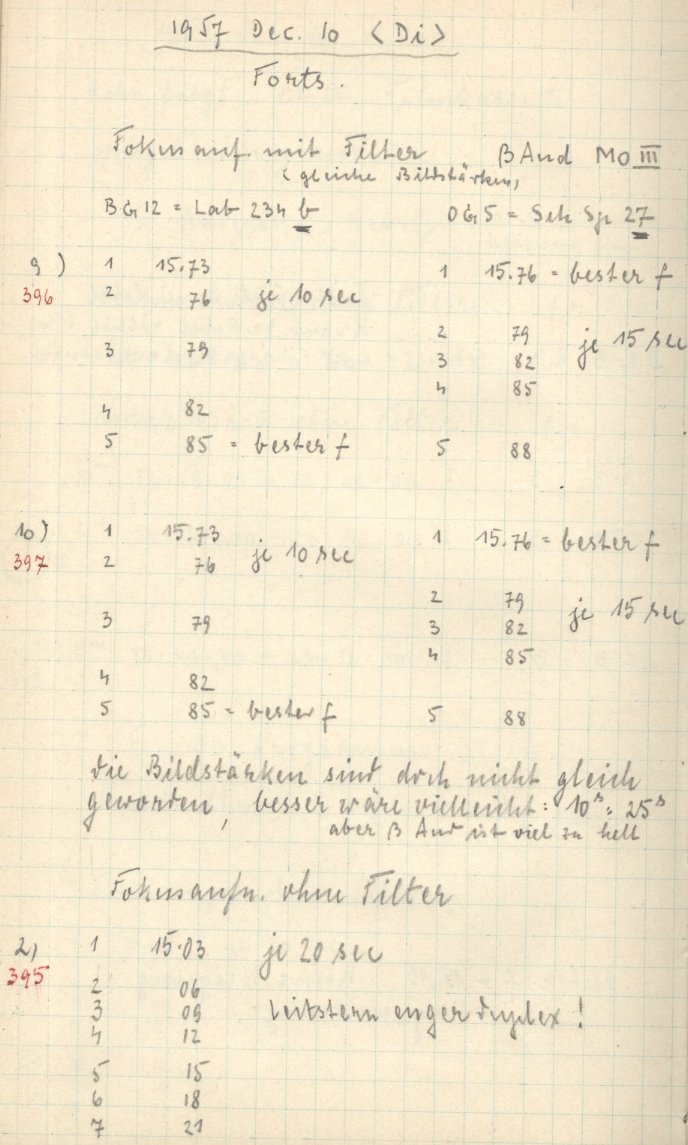 1957 Dec. 10 <Di>
Forts.
Fokusauf. mit Filter β And MO III
(gleiche Bildstärken,
BG 12 = Lab 234 b OG 5 = Sch Sp 27
9) 1 15.73 1 15.76 = bester f
396 2 76 je 10 sec
2 79 je 15 sec
3 79 3 82
4 85
4 82
5 85 = bester f 5 88
10) 1 15.73 1 15.76 = bester f
397 2 76 je 10 sec
2 79 je 15 sec
3 79 3 82
4 85
4 82
5 85 = bester f 5 88
die Bildstärken sind doch nicht gleich
geworden, besser wäre vielleicht: 10ˢ : 25ˢ
aber β And ist viel zu hell
Fokusaufn. ohne Filter
2) 1 15.03 je 20 sec
395
2 06
3 09 Leitstern enger duplex!
4 12
5 15
6 18
7 21